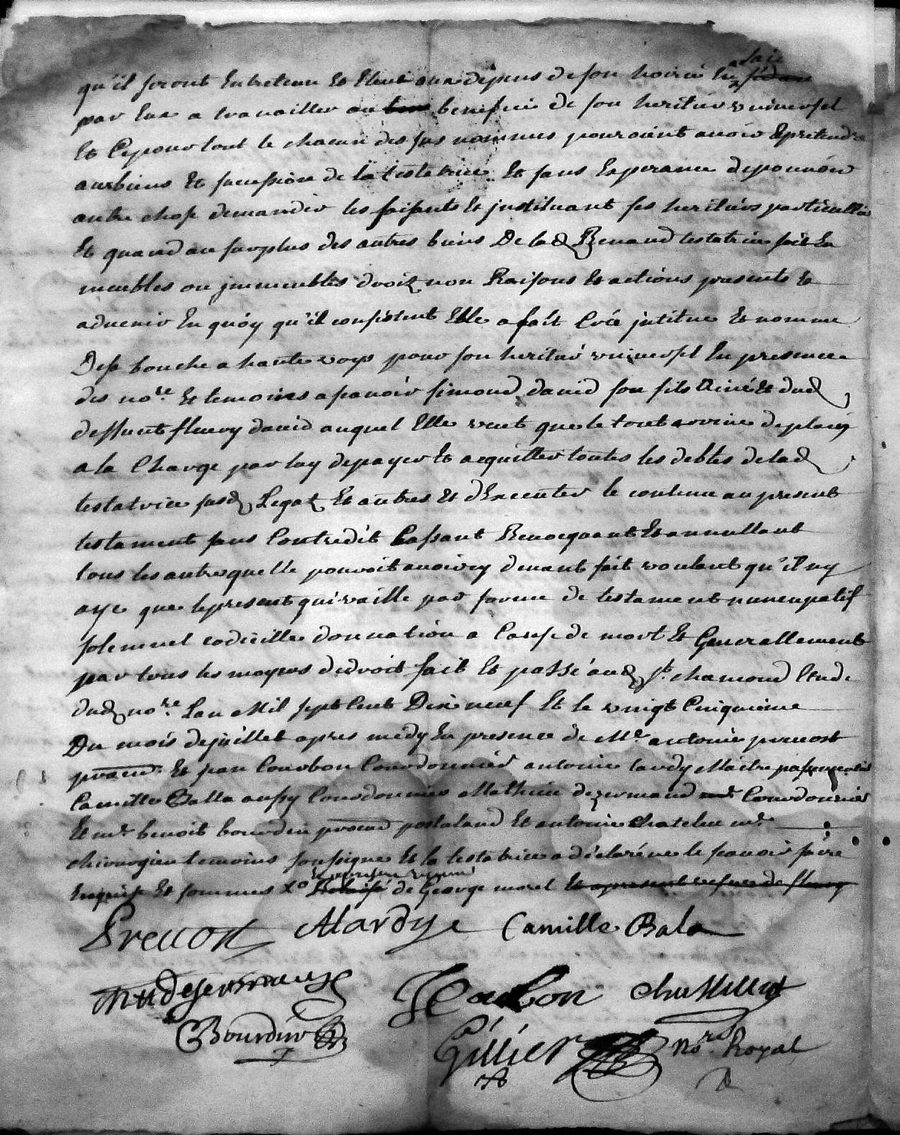 qu'il seront Entretenu Et Eleve aux depens de son hoirie En
par Eux a travailler au benefice de son heritier universel
Et Ce pour tout le chacun des sus nommes pouroient avoir Et pretendre
aux biens Et sucession de la testatrice Et sans Esperance de pouvoir
autre chose demander les faisants Et jnstituant ses heritiers particulliers
Et quand au surplus des autres biens De lad Renaud testatrice soit En
meubles ou jmmeubles droitz non Raisons Et actions presents Et
advenir En quoy qu'il consistent Elle a fait Créé jnstitue Et nomme
De sa bouche a haute voys pour son heritier universel En presence
des nore Et temoins a scavoir simond david son fils Et dud
deffunt fleury david auquel Elle veut que le tout arrive de plain
a la Charge par luy de payer Et acquitter toutes les debtes de lad
testatrice susd Legatz Et autres Et d'Executer le contenu au present
testament sans Contredit Cassant Revocquant Et annullant
tous les autres quelle pouroit avoir cy devant fait voulant qu'il ny
aye que le present qui vaille par forme de testament nuncupatif
solemnel codicille donnation a Cause de mort Et Generallement
par tous les moyens de droit fait Et passé aud St chamond Etude
dud nore Lan Mil sept Cent Dix neuf Et le vingt Cinquieme
Du mois de juillet apres midy En presence de Me antoine prevost
Et jean Courbon Courdonnier antoine lardy Maitre passementier
Camille Balla aussy Courdonnier Mathieu dejermand Courdonnier
Et mr benoit bourdin postaland Et antoine chatelus mre
chirurgien temoins soussigne Et la testatrice a déclaré ne le scavoir faire
Enquise Et sommee de George morel
Prevost Alardye Camille Bala
Courbon
Bourdin
Gillier nore Royal